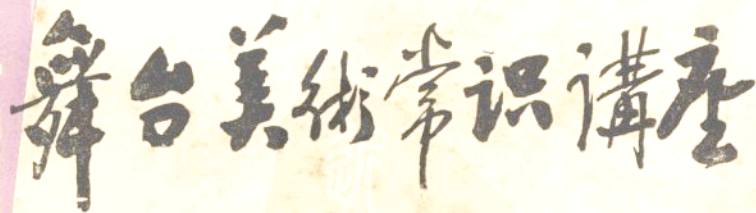 舞台美術常识講座